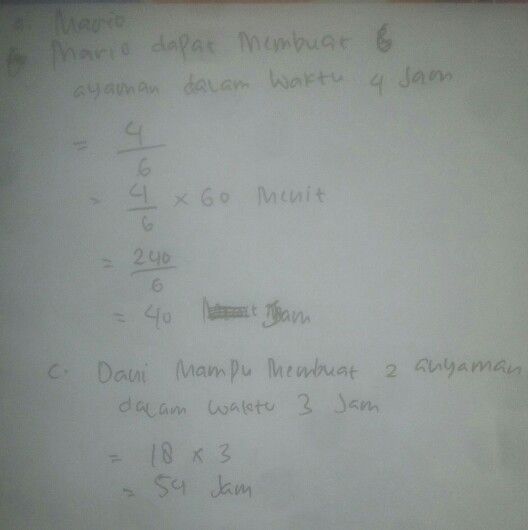 a. Mario
b Mario dapat Membuat 6
ayaman dalam Waktu 4 Jam
= 4/6
= 4/6 × 60 Menit
= 240/6
= 40 Jam
c. Dani Mampu Membuat 2 anyaman
dalam waktu 3 Jam
= 18 × 3
= 54 Jam